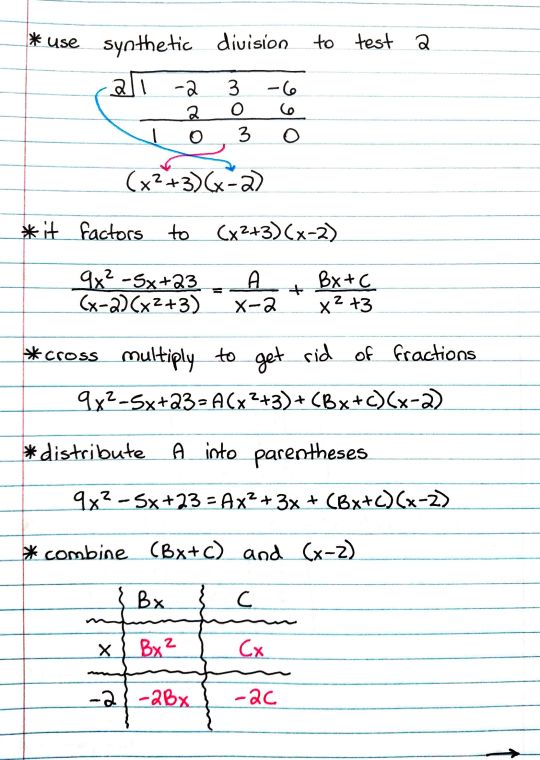 * use synthetic division to test 2
2 1 -2 3 -6
2 0 6
1 0 3 0
(x²+3)(x-2)
* it factors to (x²+3)(x-2)
9x²-5x+23 / (x-2)(x²+3) = A / x-2 + Bx+C / x²+3
* cross multiply to get rid of fractions
9x²-5x+23=A(x²+3)+(Bx+C)(x-2)
* distribute A into parentheses
9x²-5x+23=Ax²+3x+(Bx+C)(x-2)
* combine (Bx+C) and (x-2)
Bx C
x Bx² Cx
-2 -2Bx -2C